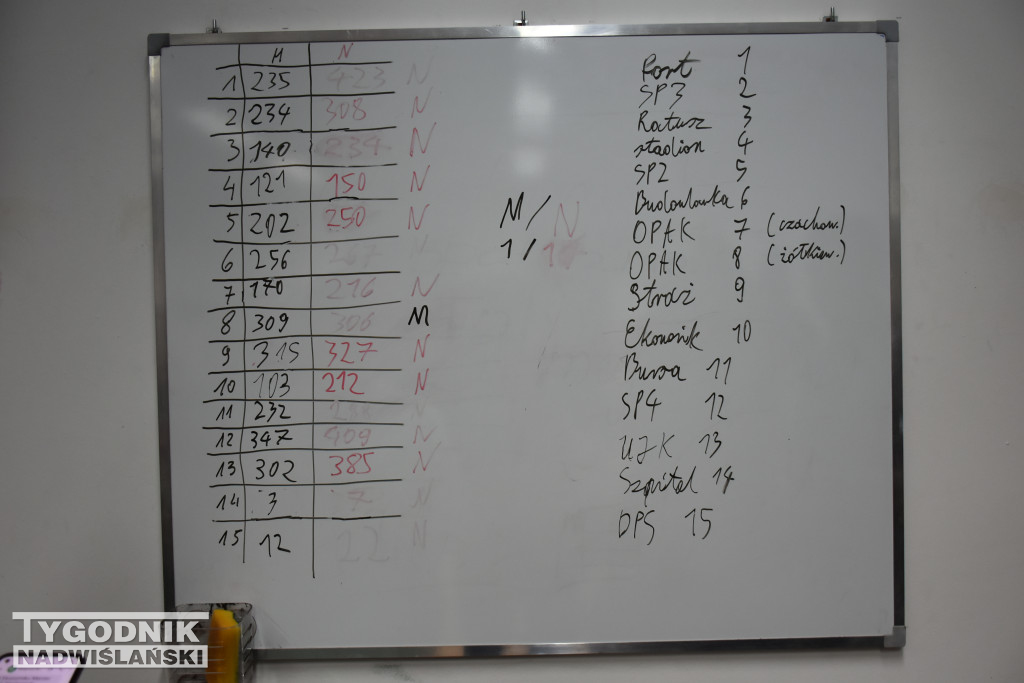 M N
1 235 423 N
2 234 308 N
3 140 234 N
4 121 150 N
5 202 250 N
6 256
7 170 216 N
8 309 306 M
9 315 327 N
10 103 212 N
11 232
12 347 409 N
13 302 385 N
14 3 7 N
15 12 22 N
M/N
1/1
Port 1
SP3 2
Ratusz 3
stadion 4
SP2 5
Budowlanka 6
OPAK 7 (czachow.)
OPAK 8 (żółkiew.)
Straż 9
Ekonomik 10
Bursa 11
SP4 12
UJK 13
Szpital 14
DPS 15
TYGODNIK
NADWIŚLAŃSKI